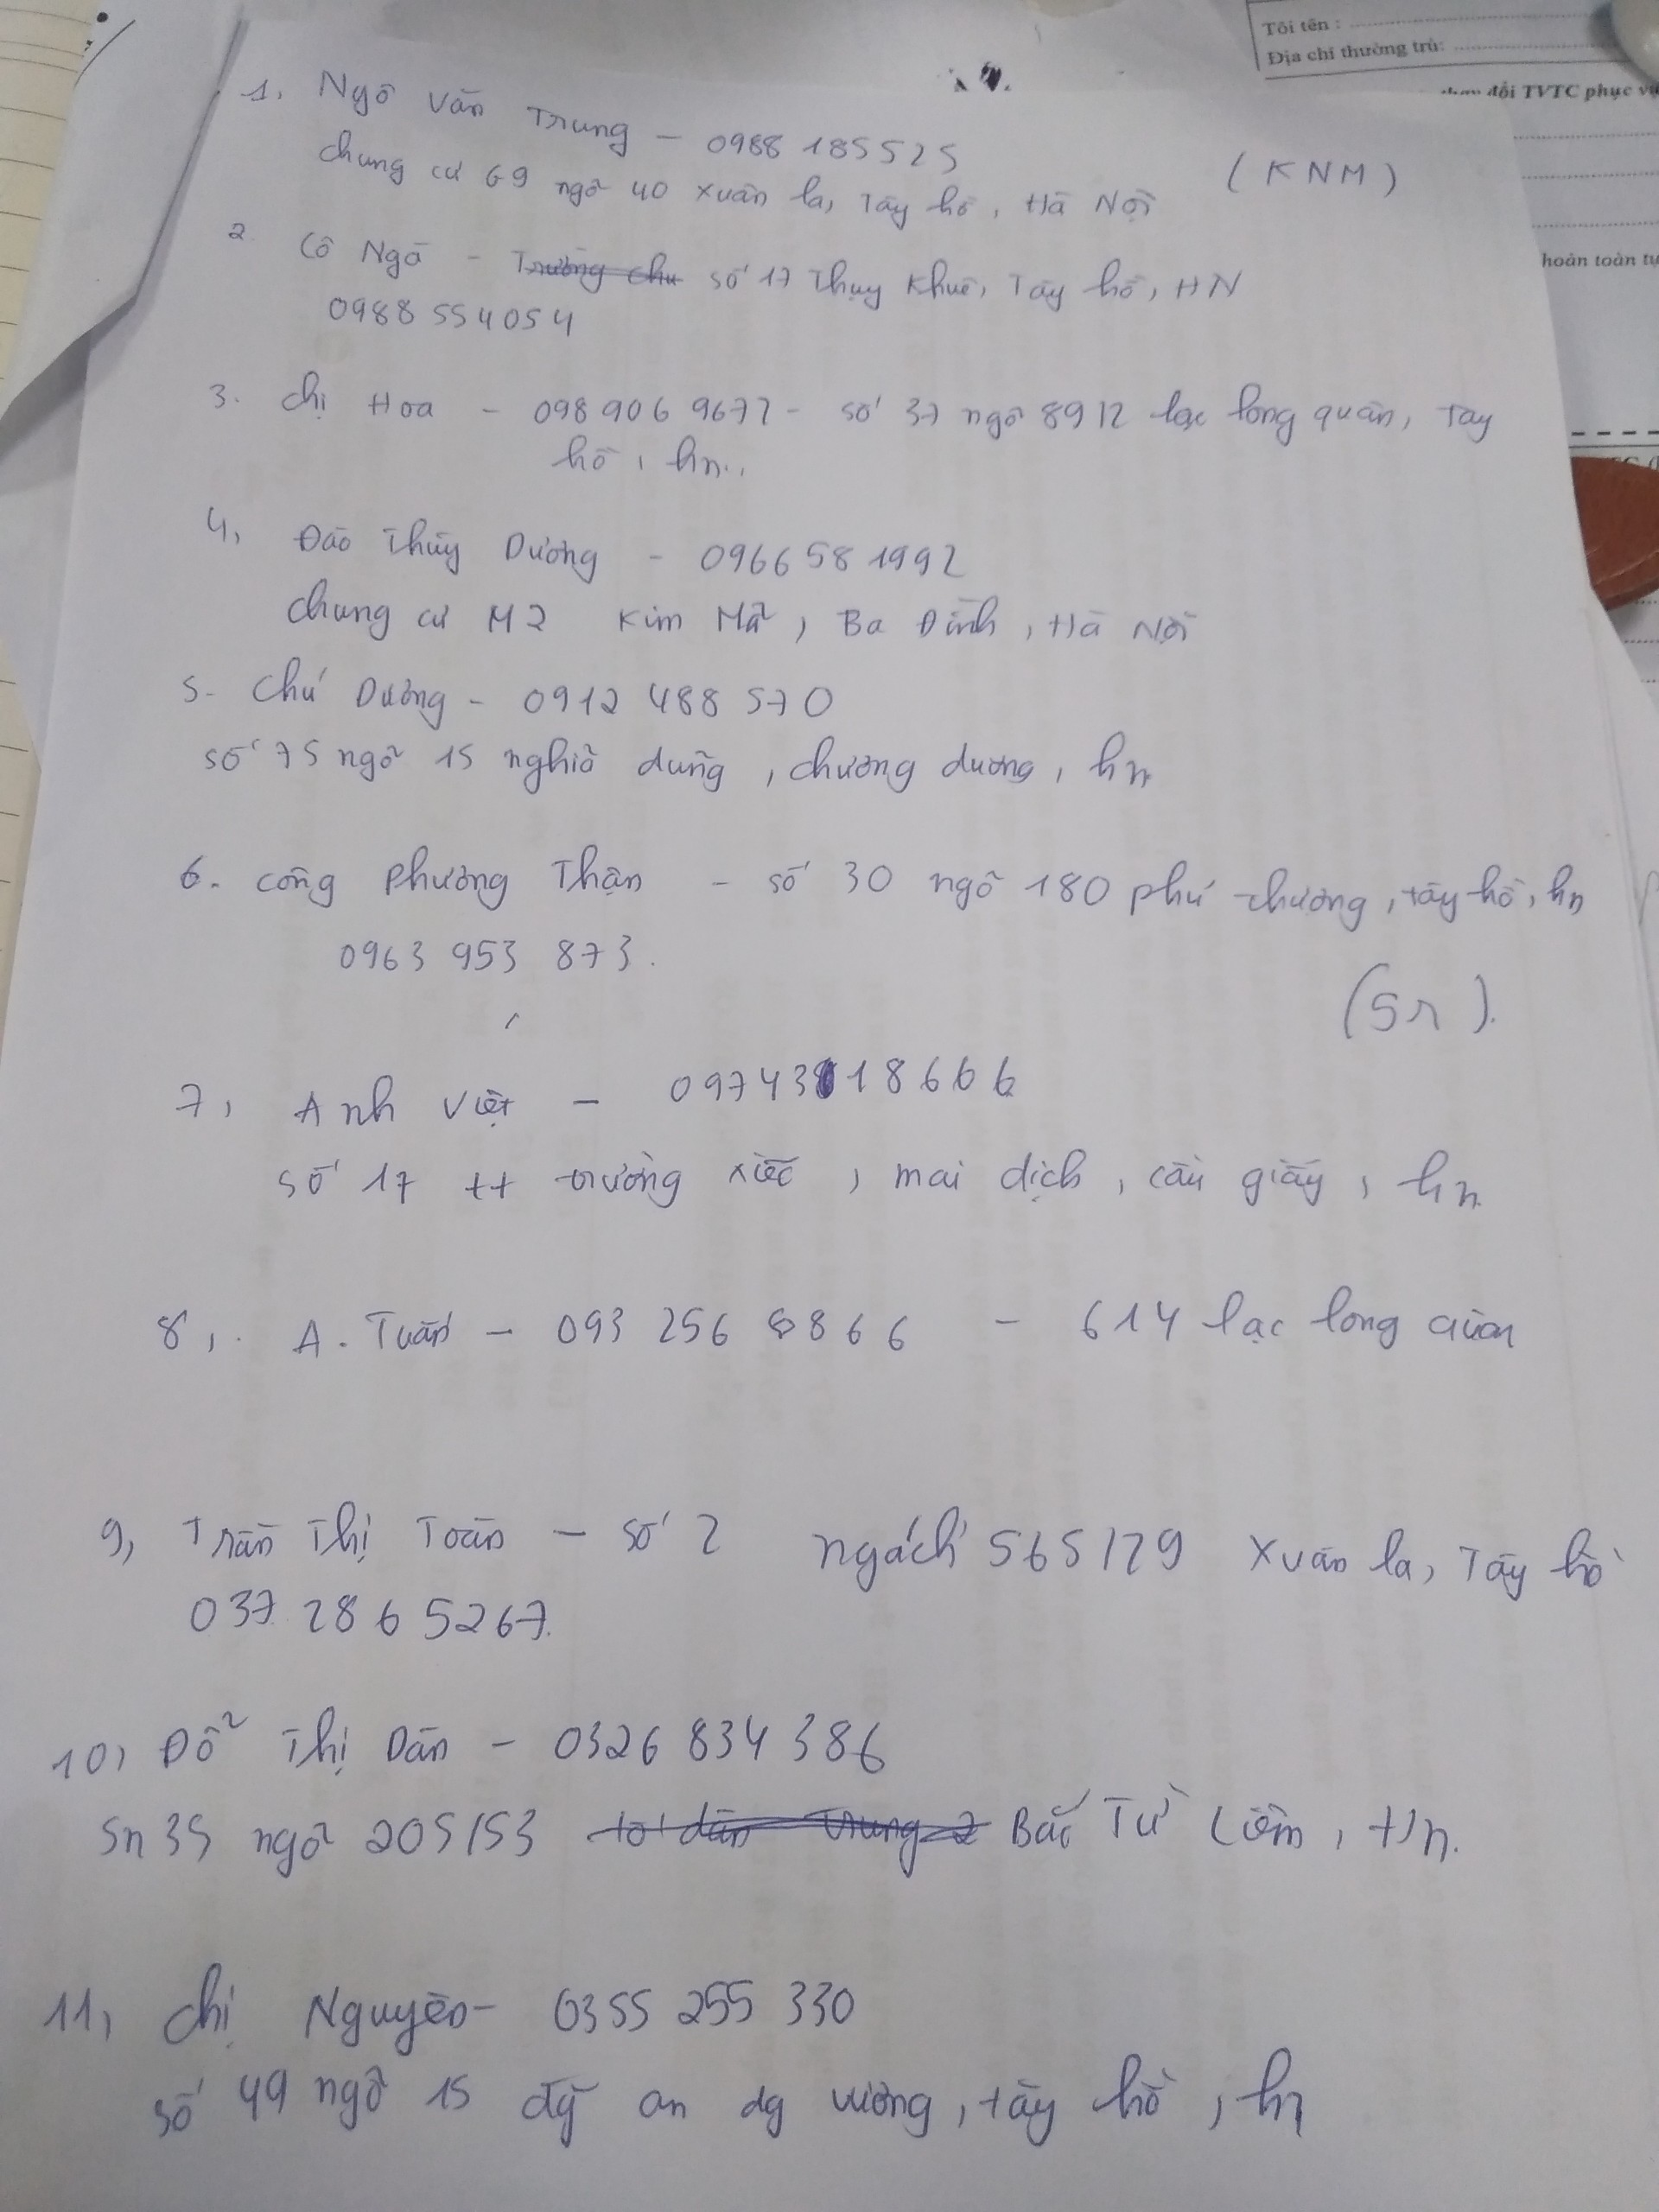 Tôi tên :
Địa chỉ thường trú:
đổi TVTC phục vụ
hoàn toàn tự
1. Ngô Văn Trung - 0988 185525
(KNM)
chung cư 69 ngõ 40 Xuân la, Tây hồ, Hà Nội
2. Cô Ngà - số 17 Thụy Khuê, Tây hồ, HN
0988 554054
3. chị Hoa - 098 906 9672 - số 37 ngõ 8912 lạc long quân, Tây
hồ, hn.
4, Đào Thùy Dương - 0966 58 1992
chung cư M2 Kim Mã, Ba Đình, Hà Nội
5- Chú Dương - 0912 488 570
số 75 ngõ 15 nghĩa dũng, chương dương, hn
6. Công Phương Thận - số 30 ngõ 180 phú thương, tây hồ, hn
0963 953 873.
7, Anh Việt -
số 17 tt trường xiếc, mai dịch, cầu giấy, hn
8, A. Tuấn - 093 256 8866 - 614 lạc long quân
9, Trần Thị Toàn - số 2 ngách 565/29 Xuân la, Tây hồ
037 286 5267.
10, Đỗ Thị Dần - 0326 834 386
Sn 35 ngõ 205/53 Bắc Từ Liêm, Hn.
11, chị Nguyên - 0355 255 330
số 49 ngõ 15 an dg vương, tây hồ, hn